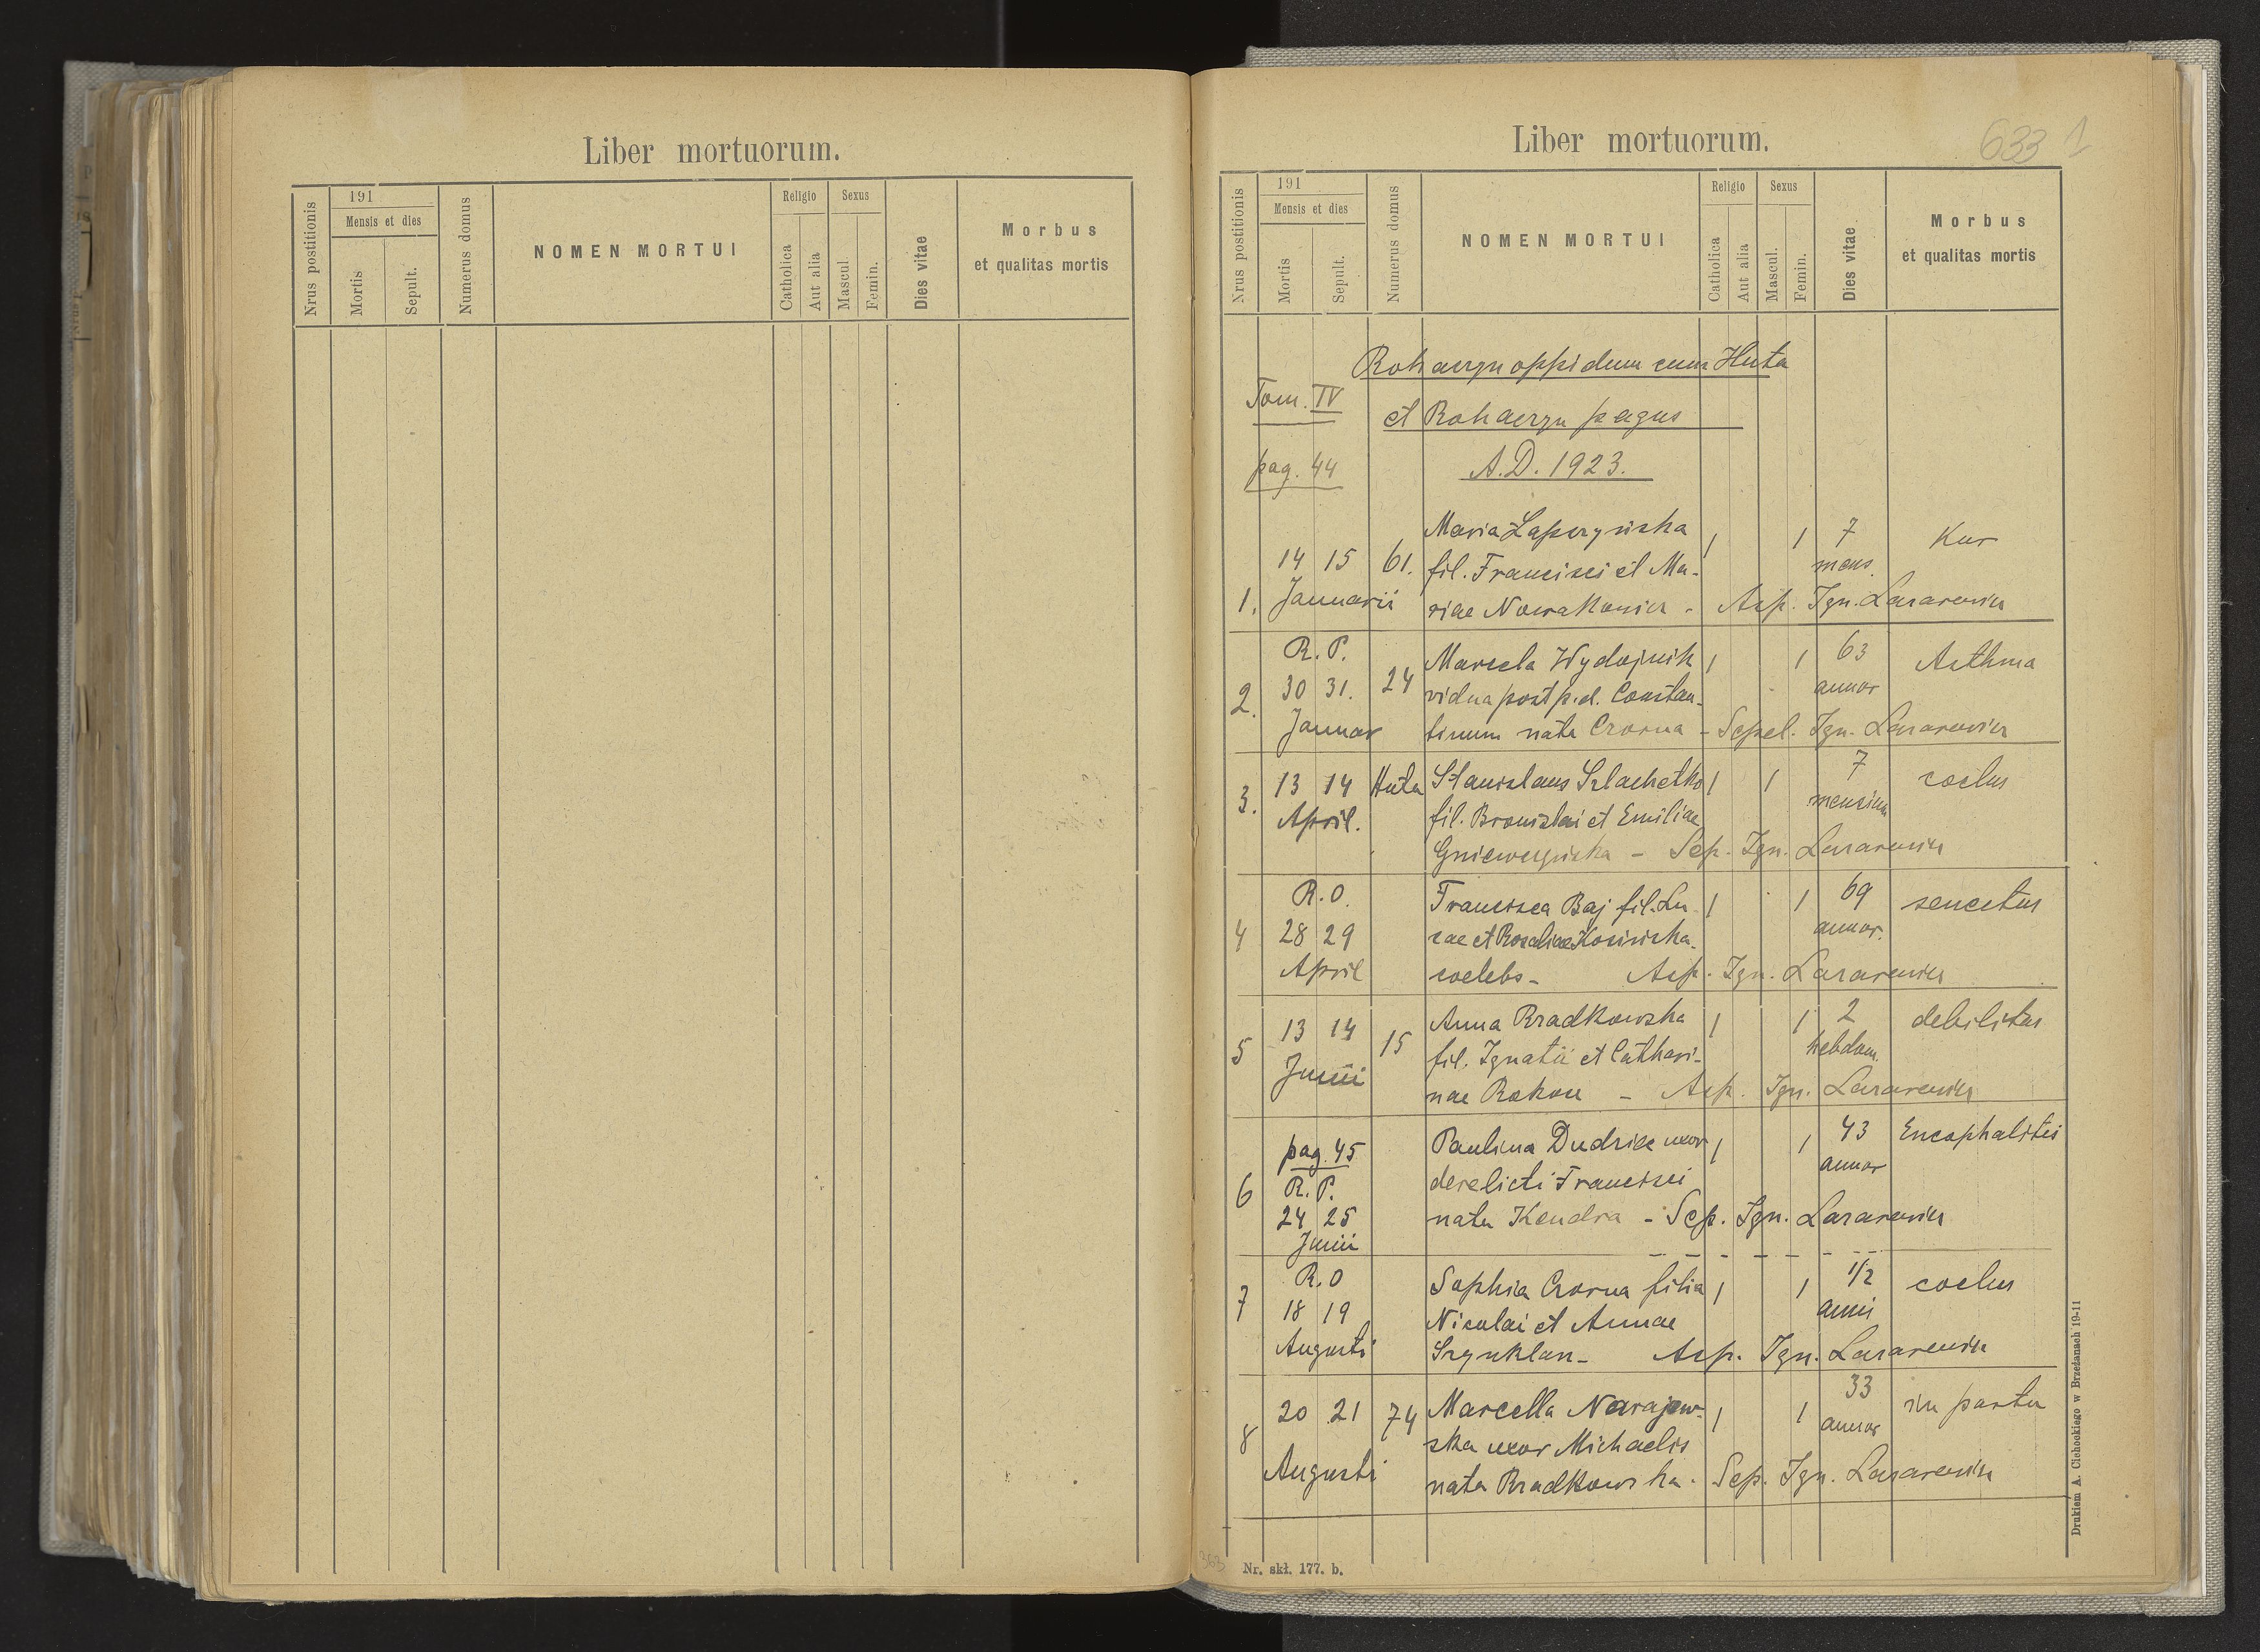 Liber mortuorum.
Nrus postitionis
191
Mensis et dies
Mortis
Sepult.
Numerus domus
NOMEN MORTUI
Religio
Catholica
Aut alia
Sexus
Mascul.
Femin.
Dies vitae
Morbus
et qualitas mortis
Liber mortuorum.
633 1
Nrus postitionis
191
Mensis et dies
Mortis
Sepult.
Numerus domus
NOMEN MORTUI
Religio
Catholica
Aut alia
Sexus
Mascul.
Femin.
Dies vitae
Morbus
et qualitas mortis
Rohaczyn oppidum cum Huta
Tom. IV
et Rohaczyn pagus
pag. 44
A.D. 1923.
Maria Lapczyńska 1 1 7 Kur
14 15 61. fil. Francisci et Ma- mens.
1. Januarii riae Nowakowicz - Asp. Ign. Lazarewicz
R. P. Marcela Wydojnik 1 1 63 Asthma
2. 30 31. 24 vidua post p.d. Constan- annor
Januar tinum nata Czorna - Sepel. Ign. Lazarewicz
3. 13 14 Huta Stanislaus Szlachetko 1 1 7 coelus
April. fil. Bronislai et Emiliae mensium
Gniewczyńska - Sep. Ign. Lazarewicz
R. O. Francisca Baj fil. Lu- 1 1 69 senectus
4 28 29 cae et Rosaliae Kosińska annor.
April coelebs - Asp. Ign. Lazarewicz
5 13 14 15 Anna Rradkowska 1 1 2 debilitas
Junii fil. Ignatii et Cathari- hebdom.
nae Rokou - Asp. Ign. Lazarewicz
pag. 45 Paulina Dudricz uxor 1 1 43 Encephalitis
6 R. P. derelicti Francisci annor
24 25 nata Kendra - Sep. Ign. Lazarewicz
Junii
R. O Sophia Czorna filia 1 1 1/2 coelus
7 18 19 Nicolai et Annae anni
Augusti Szynklar - Asp. Ign. Lazarewicz
8 20 21 74 Marcella Narajow- 1 1 33 in partu
ska uxor Michaelis annor
Augusti nata Rradkowska - Sep. Ign. Lazarewicz
Nr. skł. 177. b.
363
Drukiem A. Cichockiego w Brzeżanach 19-11